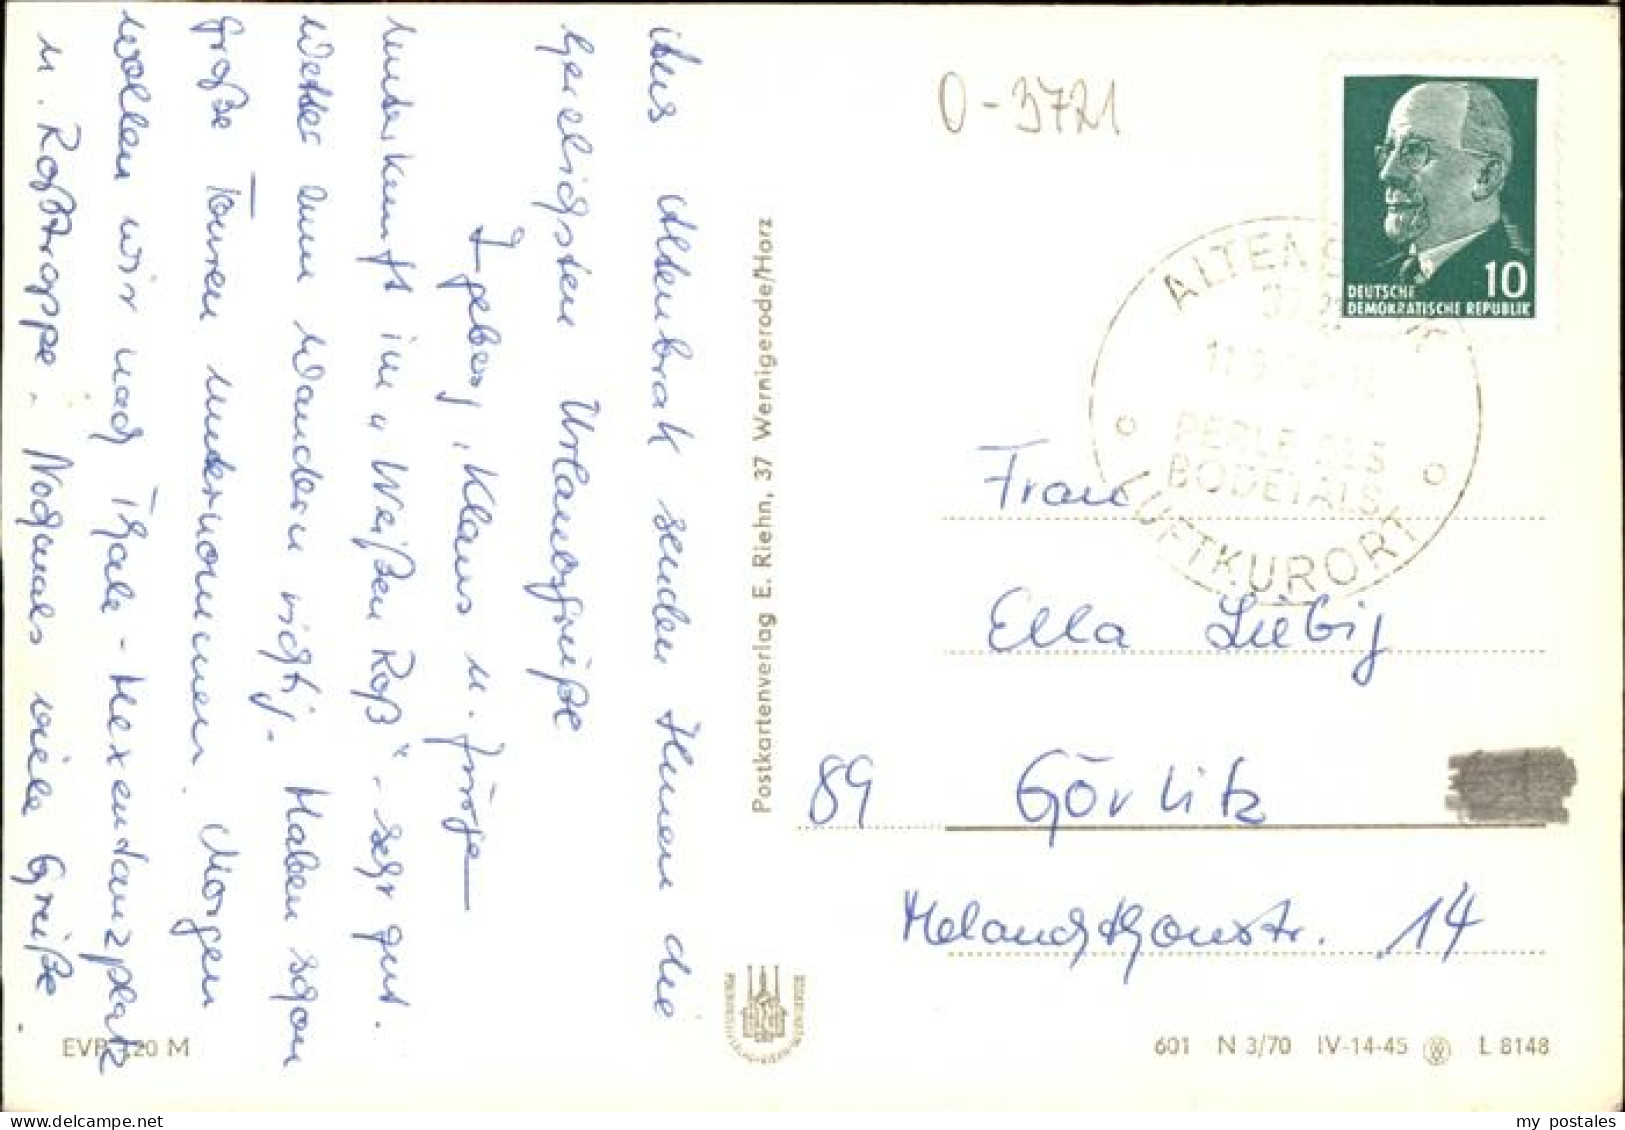 Aus Altenbrak senden Ihnen die
herzlichsten Urlaubsgrüße
Ingeborg, Klaus u. Jürgen
Unterkunft im „Weißen Roß“ sehr gut.
Wetter zum Wandern richtig. Haben schon
große Touren unternommen. Morgen
wollen wir nach Thale - Hexentanzplatz
u. Roßtrappe. Nochmals viele Grüße
EVP 120 M
Postkartenverlag E. Riehn, 37 Wernigerode/Harz
O-3721
10
DEUTSCHE
DEMOKRATISCHE REPUBLIK
PERLE DES
BODETALS
LUFTKURORT
Frau
Ella Liebig
89 Görlitz
Melanchthonstr. 14
601 N 3/70 IV-14-45 L 8148
my postales